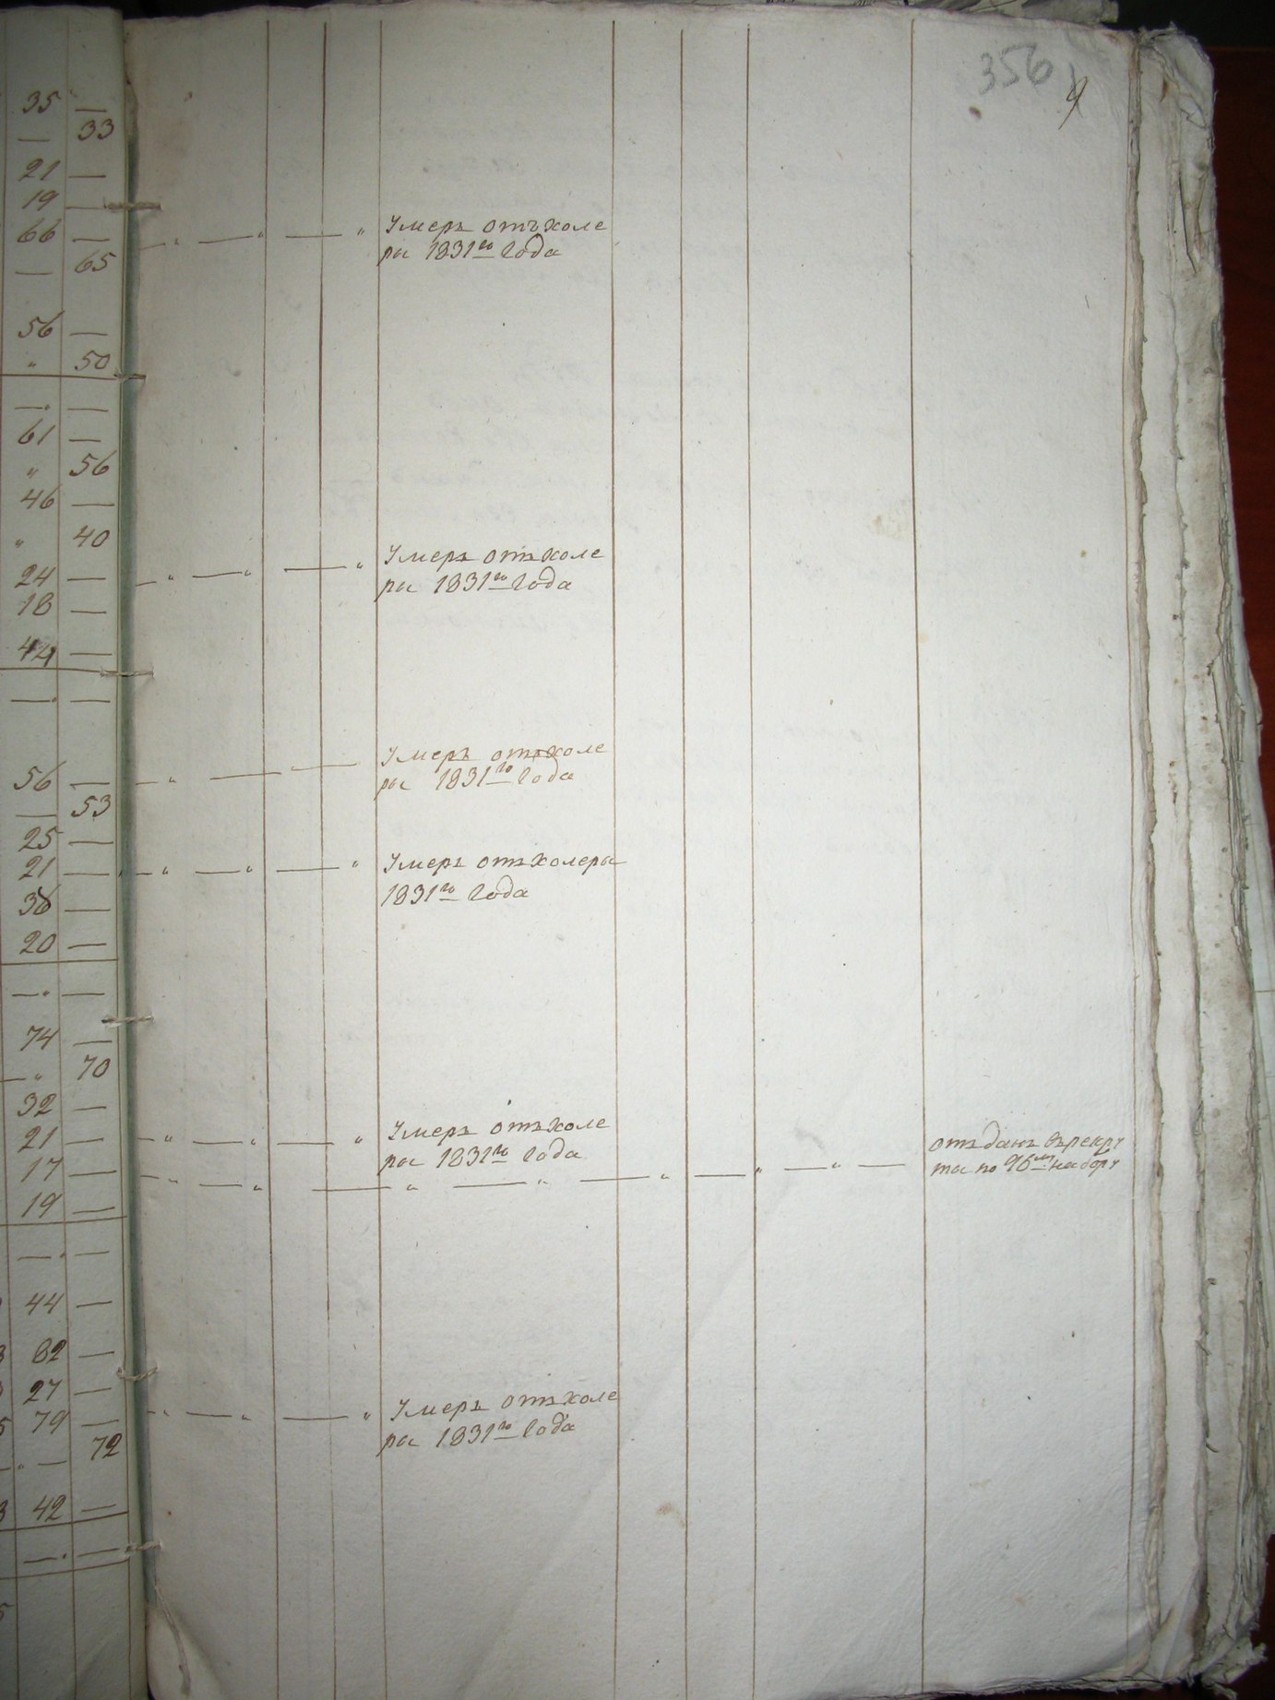 356
9
35 —
— 33
21 —
19 —
66 —
— 65
56 —
" 50
— . —
61 —
" 56
46 —
" 40
24 —
18 —
44 —
— . —
56 —
— 53
25 —
21 —
36 —
20 —
— . —
74 —
— " 70
32 —
21 —
17 —
19 —
— . —
44 —
82 —
27 —
79 —
— " — 72
42 —
— . —
Умеръ отъ холе
ры 1831го года
Умеръ отъ холе
ры 1831го года
Умеръ отъ холе
ры 1831го года
Умеръ отъ холеры
1831го года
Умеръ отъ холе
ры 1831го года
отъданъ върекру
ты по 96му набору
Умеръ отъ холе
ры 1831го года